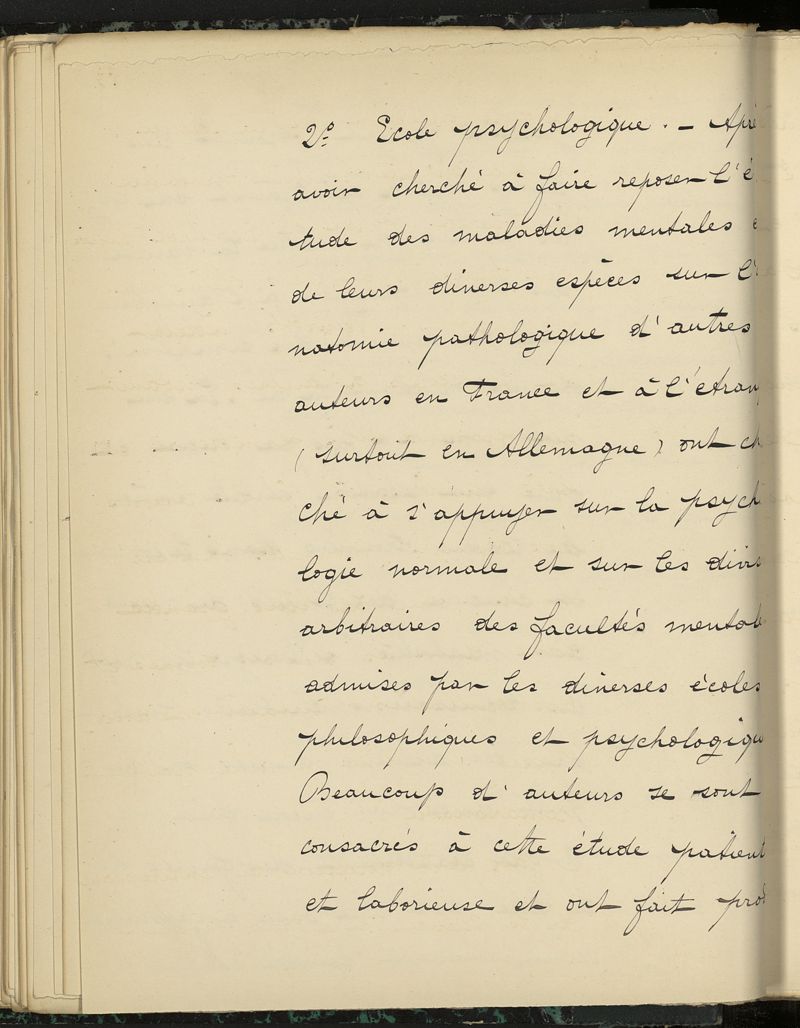 2º Ecole psychologique. – Apr
avoir cherché à faire reposer l'é
tude des maladies mentales e
de leurs diverses espèces sur l'
natomie pathologique d'autres
auteurs en France et à l'étran
(surtout en Allemagne) ont ch
ché à s'appuyer sur la psych
logie normale et sur les divis
arbitraires des facultés mental
admises par les diverses écoles
philosophiques et psychologiqu
Beaucoup d'auteurs se sont
consacrés à cette étude patient
et laborieuse et ont fait pro